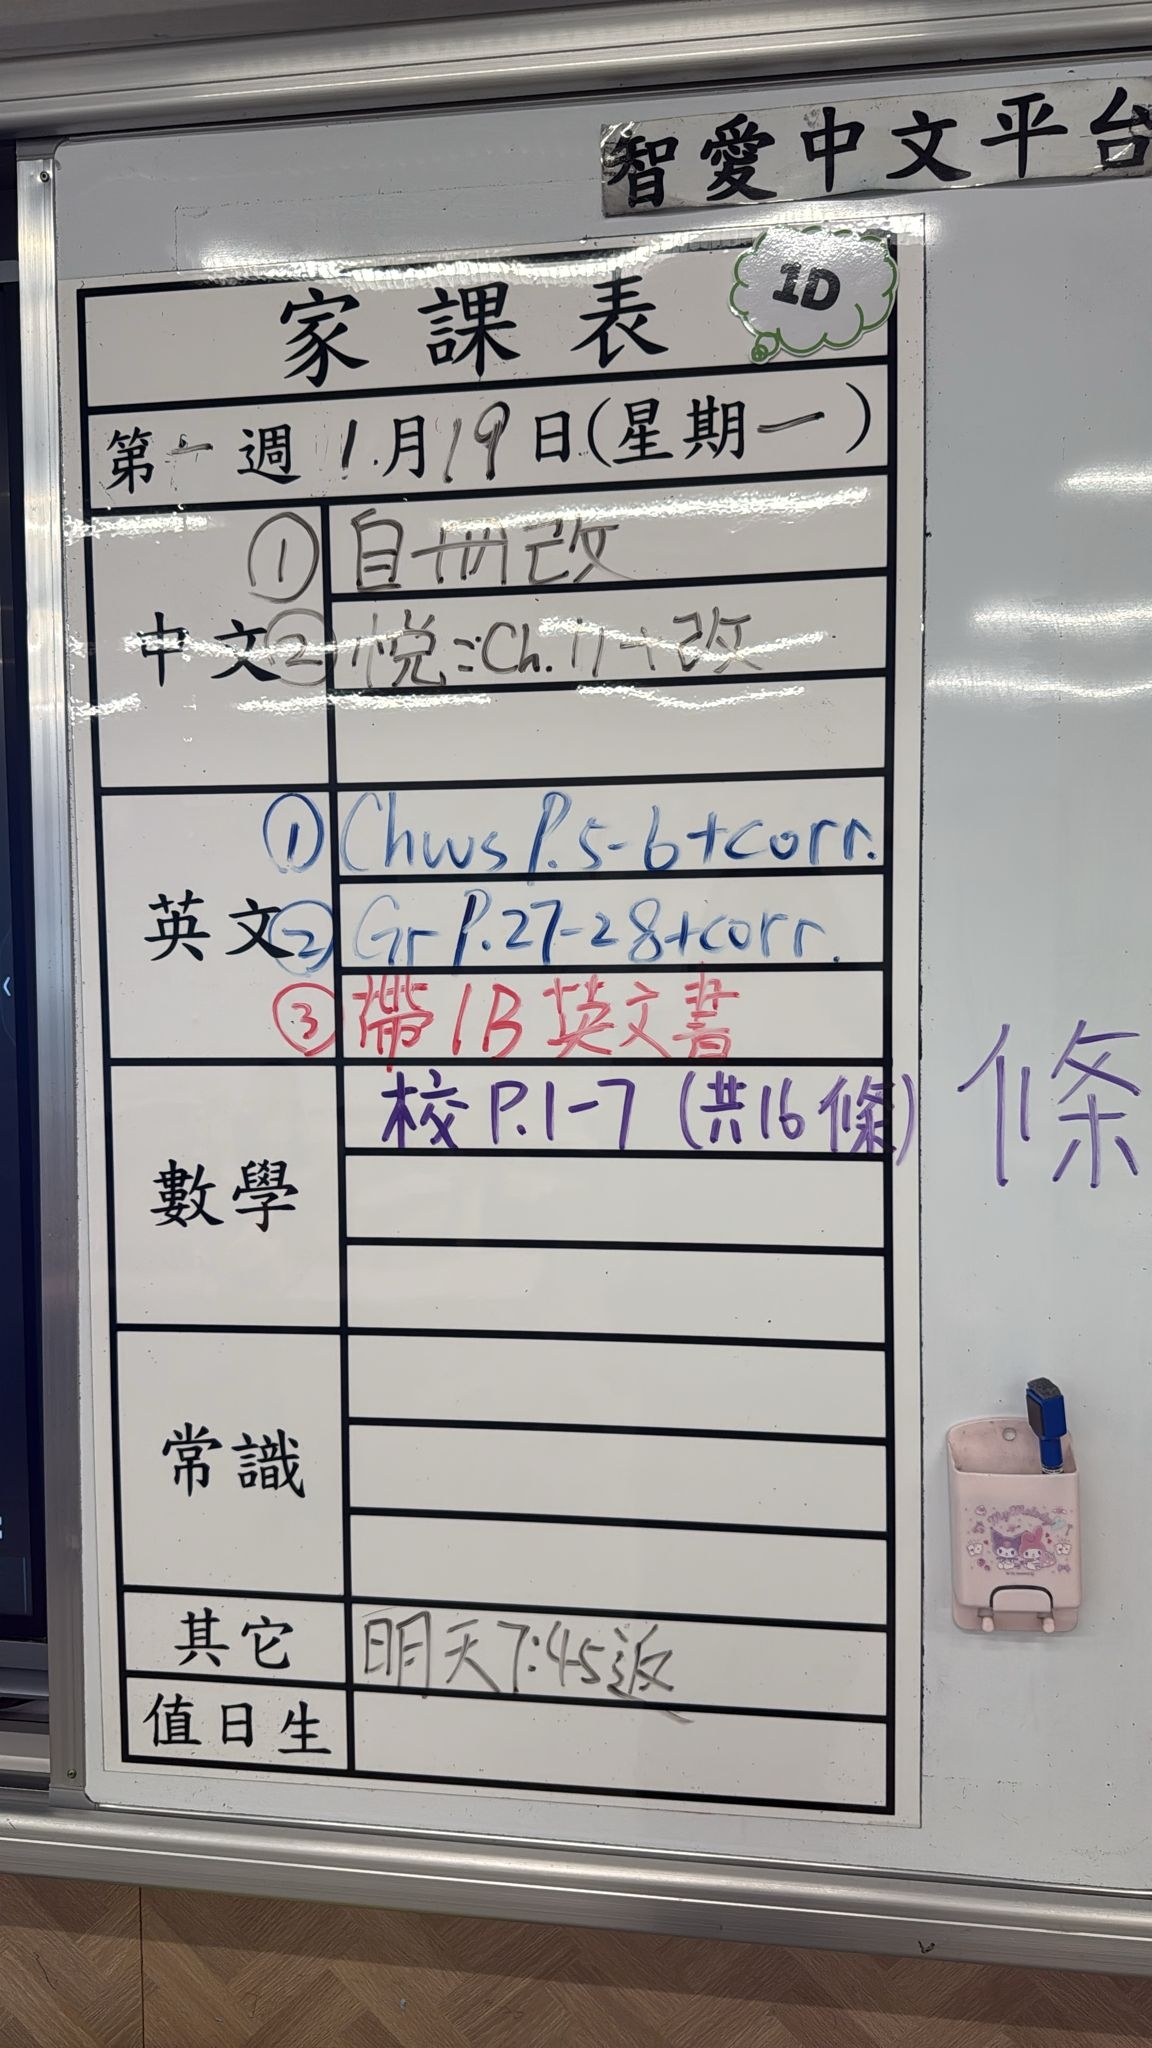 智愛中文平台
1D
家課表
第一週 1月19日(星期一)
中文
① 自冊改
② 悦:Ch.11+改
英文
① Chws P.5-6+corr.
② Gr P.27-28+corr.
③ 帶1B英文書
數學
校 P.1-7 (共16條)
條
常識
其它
明天7:45返
值日生
My Melody